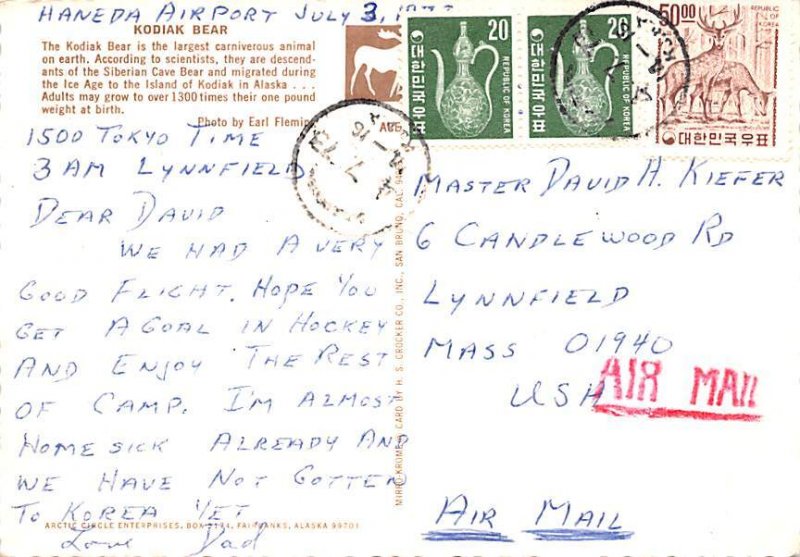 HANEDA AIRPORT JULY 3,
KODIAK BEAR
The Kodiak Bear is the largest carniverous animal
on earth. According to scientists, they are descend-
ants of the Siberian Cave Bear and migrated during
the Ice Age to the Island of Kodiak in Alaska . . .
Adults may grow to over 1300 times their one pound
weight at birth.
Photo by Earl Fleming
1500 TOKYO TIME
3 AM LYNNFIELD
DEAR DAVID
WE HAD A VERY
GOOD FLIGHT. HOPE YOU
GET A GOAL IN HOCKEY
AND ENJOY THE REST
OF CAMP. I'M ALMOST
HOME SICK ALREADY AND
WE HAVE NOT GOTTEN
TO KOREA YET
ARCTIC CIRCLE ENTERPRISES, BOX 2174, FAIRBANKS, ALASKA 99701
Love Dad
MIRRO-KROME® CARD BY H. S. CROCKER CO., INC., SAN BRUNO, CAL.
20
REPUBLIC OF KOREA
대한민국우표
20
REPUBLIC OF KOREA
대한민국우표
50.00
REPUBLIC OF KOREA
대한민국우표
MASTER DAVID H. KIEFER
6 CANDLEWOOD RD
LYNNFIELD
MASS 01940
USA
AIR MAIL
AIR MAIL